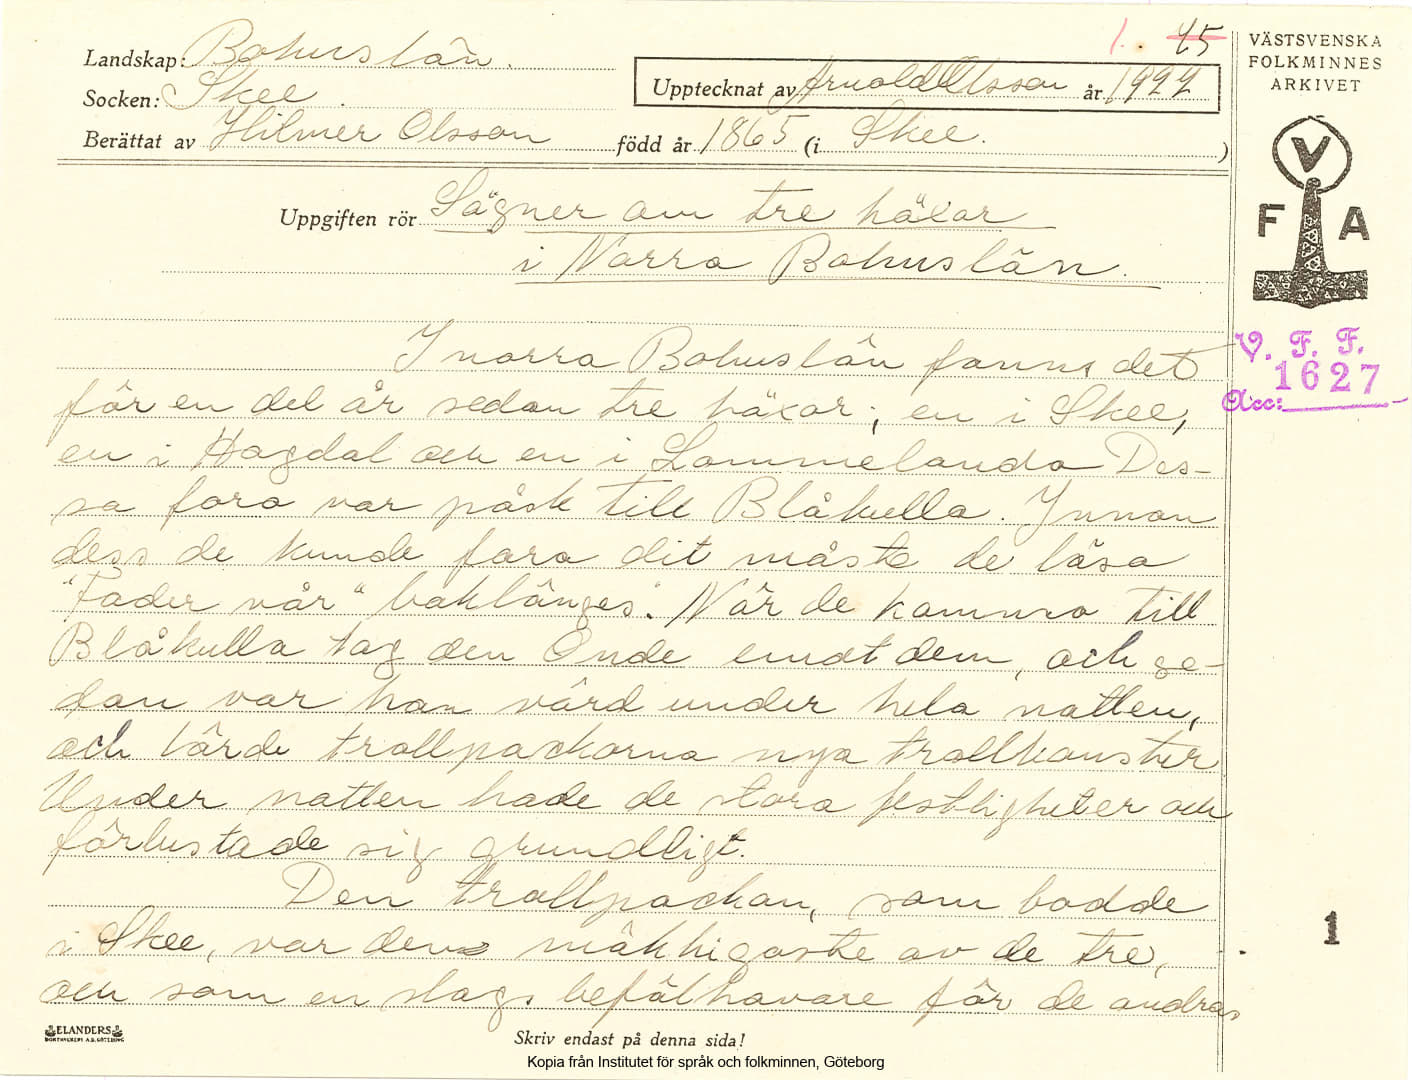 1. 45
Landskap: Bohuslän.
Socken: Skee.
Upptecknat av Arnold Olsson år 1927
Berättat av Hilmer Olsson född år 1865 (i Skee. )
VÄSTSVENSKA
FOLKMINNES
ARKIVET
V
F A
Uppgiften rör Sägner om tre häxor
i Norra Bohuslän.
V. F. F.
1627
Acc:
I norra Bohuslän fanns det
för en del år sedan tre häxor; en i Skee,
en i Hogdal och en i Lommelanda Des-
sa fora var påsk till Blåkulla. Innan
dess de kunde fara dit måste de läsa
"Fader vår" baklänges. När de kommo till
Blåkulla tog den Onde emot dem, och se-
dan var han värd under hela natten,
och lärde trollpackorna nya trollkonster
Under natten hade de stora festligheter och
förlustade sig grundligt.
Den trollpackan, som bodde
i Skee, var den mäktigaste av de tre,
och som en slags befälhavare för de andra
1
ELANDERS
BOKTRYCKERI A.B. GÖTEBORG
Skriv endast på denna sida!
Kopia från Institutet för språk och folkminnen, Göteborg